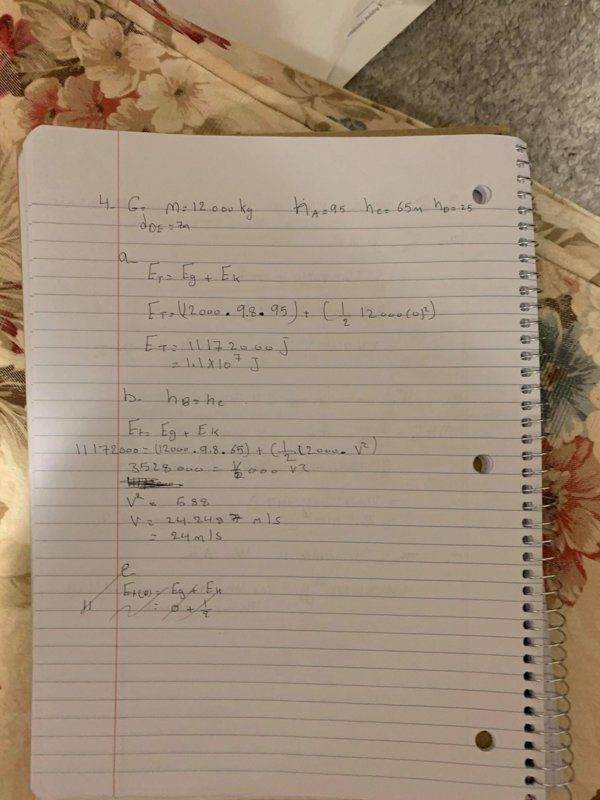 4- G= m=12000kg hA=95 hc=65m hD=25
dDE=7m
a-
ET= Eg + Ek
ET=(12000.9.8.95) + (1/2 12000(0)²)
ET= 11172000 J
= 1.1x10⁷ J
b- hB=hc
Et= Eg + Ek
11172000=(12000.9.8.65)+(1/2.12000. v²)
3528000 = 6000 v²
v²= 588
v= 24.2487 m/s
= 24m/s
Eg + Ek
= 0 + 1/2